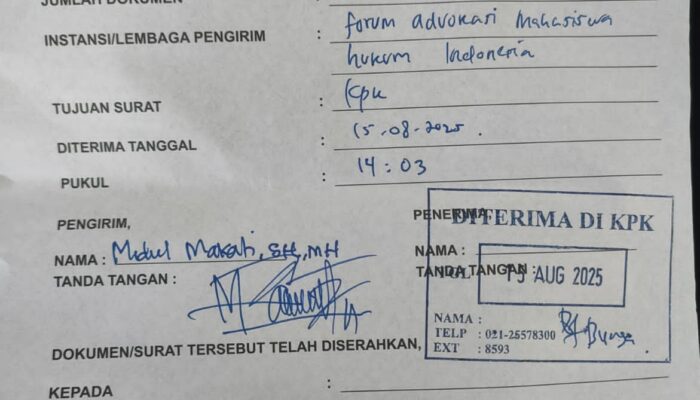 JUMLAH DOKUMEN :
INSTANSI/LEMBAGA PENGIRIM : forum advokasi Mahasiswa
hukum Indonesia
TUJUAN SURAT : kpk
DITERIMA TANGGAL : 15-08-2025.
PUKUL : 14:03
PENGIRIM,
NAMA : Makati, SH., MH
TANDA TANGAN :
PENERIMA,
NAMA :
TANDA TANGAN :
DITERIMA DI KPK
TGL 15 AUG 2025
NAMA :
TELP : 021-25578300
EXT : 8593
Bunga
DOKUMEN/SURAT TERSEBUT TELAH DISERAHKAN,
KEPADA :